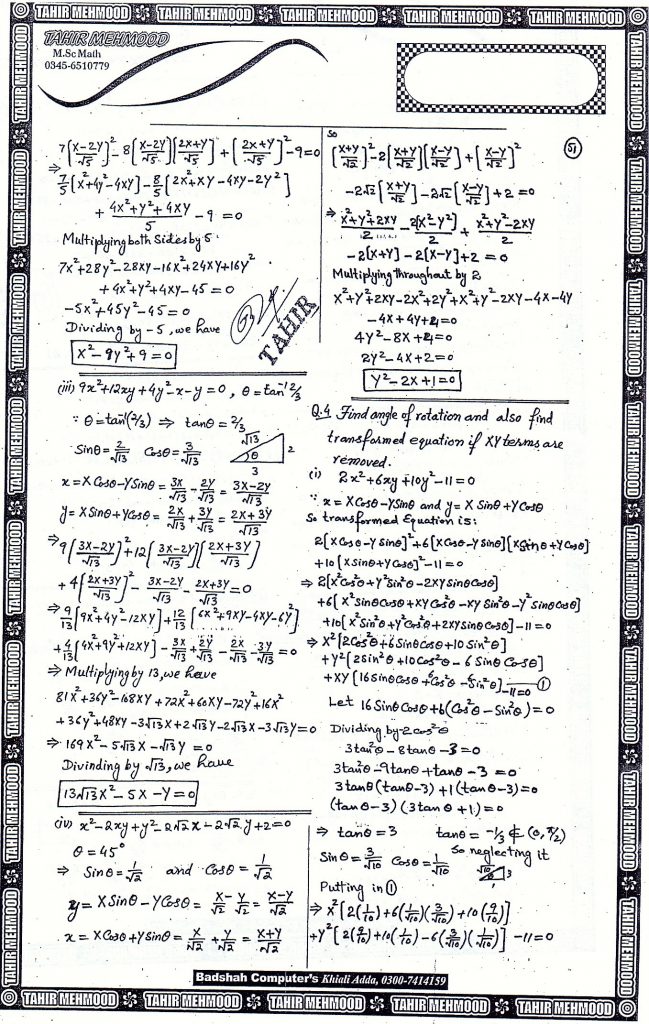 TAHIR MEHMOOD TAHIR MEHMOOD TAHIR MEHMOOD TAHIR MEHMOOD TAHIR MEHMOOD
TAHIR MEHMOOD
M.Sc Math
0345-6510779
7[(X-2Y)/√5]² - 8[(X-2Y)/√5][(2X+Y)/√5] + [(2X+Y)/√5]² - 9 = 0
⇒ 7/5[X²+4Y²-4XY] - 8/5[2X²+XY-4XY-2Y²]
+ (4X²+Y²+4XY)/5 - 9 = 0
Multiplying both Sides by 5
7X²+28Y²-28XY-16X²+24XY+16Y²
+4X²+Y²+4XY-45=0
-5X²+45Y²-45=0
Dividing by -5, we have
X²-9Y²+9=0
TAHIR
(iii) 9x²+12xy+4y²-x-y=0, θ=tan⁻¹ 2/3
∵ θ=tan⁻¹(2/3) ⇒ tanθ=2/3
Sinθ=2/√13 Cosθ=3/√13
√13 2 θ 3
x=XCosθ-YSinθ = 3X/√13 - 2Y/√13 = (3X-2Y)/√13
y=XSinθ+YCosθ = 2X/√13 + 3Y/√13 = (2X+3Y)/√13
⇒ 9[(3X-2Y)/√13]² + 12[(3X-2Y)/√13][(2X+3Y)/√13]
+ 4[(2X+3Y)/√13]² - (3X-2Y)/√13 - (2X+3Y)/√13 = 0
⇒ 9/13[9X²+4Y²-12XY] + 12/13[6X²+9XY-4XY-6Y²]
+ 4/13[4X²+9Y²+12XY] - 3X/√13 + 2Y/√13 - 2X/√13 - 3Y/√13 = 0
⇒ Multiplying by 13, we have
81X²+36Y²-108XY+72X²+60XY-72Y²+16X²
+36Y²+48XY-3√13X+2√13Y-2√13X-3√13Y=0
⇒ 169X²-5√13X-√13Y=0
Divinding by √13, we have
13√13X²-5X-Y=0
(iv) x²-2xy+y²-2√2x-2√2y+2=0
θ=45°
⇒ Sinθ=1/√2 and Cosθ=1/√2
y=XSinθ-YCosθ = X/√2 - Y/√2 = (X-Y)/√2
x=XCosθ+YSinθ = X/√2 + Y/√2 = (X+Y)/√2
So
51
[(X+Y)/√2]² - 2[(X+Y)/√2][(X-Y)/√2] + [(X-Y)/√2]²
-2√2[(X+Y)/√2] - 2√2[(X-Y)/√2] + 2 = 0
⇒ (X²+Y²+2XY)/2 - 2(X²-Y²)/2 + (X²+Y²-2XY)/2
-2[X+Y]-2[X-Y]+2=0
Multiplying throughout by 2
X²+Y²+2XY-2X²+2Y²+X²+Y²-2XY-4X-4Y
-4X+4Y+4=0
4Y²-8X+4=0
2Y²-4X+2=0
Y²-2X+1=0
Q.4 Find angle of rotation and also find
transformed equation if XY terms are
removed.
(i) 2x²+6xy+10y²-11=0
∵ x=XCosθ-YSinθ and y=XSinθ+YCosθ
So transformed Equation is:
2[XCosθ-YSinθ]²+6[XCosθ-YSinθ][XSinθ+YCosθ]
+10[XSinθ+YCosθ]²-11=0
⇒ 2[X²Cos²θ+Y²Sin²θ-2XYSinθCosθ]
+6[X²SinθCosθ+XYCos²θ-XYSin²θ-Y²SinθCosθ]
+10[X²Sin²θ+Y²Cos²θ+2XYSinθCosθ]-11=0
⇒ X²[2Cos²θ+6SinθCosθ+10Sin²θ]
+Y²[2Sin²θ+10Cos²θ-6SinθCosθ]
+XY[16SinθCosθ+6Cos²θ-6Sin²θ]-11=0 ①
Let 16SinθCosθ+6(Cos²θ-Sin²θ)=0
Dividing by -2cos²θ
3tan²θ-8tanθ-3=0
3tan²θ-9tanθ+tanθ-3=0
3tanθ(tanθ-3)+1(tanθ-3)=0
(tanθ-3)(3tanθ+1)=0
⇒ tanθ=3 tanθ=-1/3 ∉ (0,π/2)
So neglecting it
Sinθ=3/√10 Cosθ=1/√10
√10 3 1
Putting in ①
⇒ X²[2(1/10)+6(1/√10)(3/√10)+10(9/10)]
+Y²[2(9/10)+10(1/10)-6(3/√10)(1/√10)]-11=0
Badshah Computer's Khiali Adda, 0300-7414159
TAHIR MEHMOOD TAHIR MEHMOOD TAHIR MEHMOOD TAHIR MEHMOOD TAHIR MEHMOOD